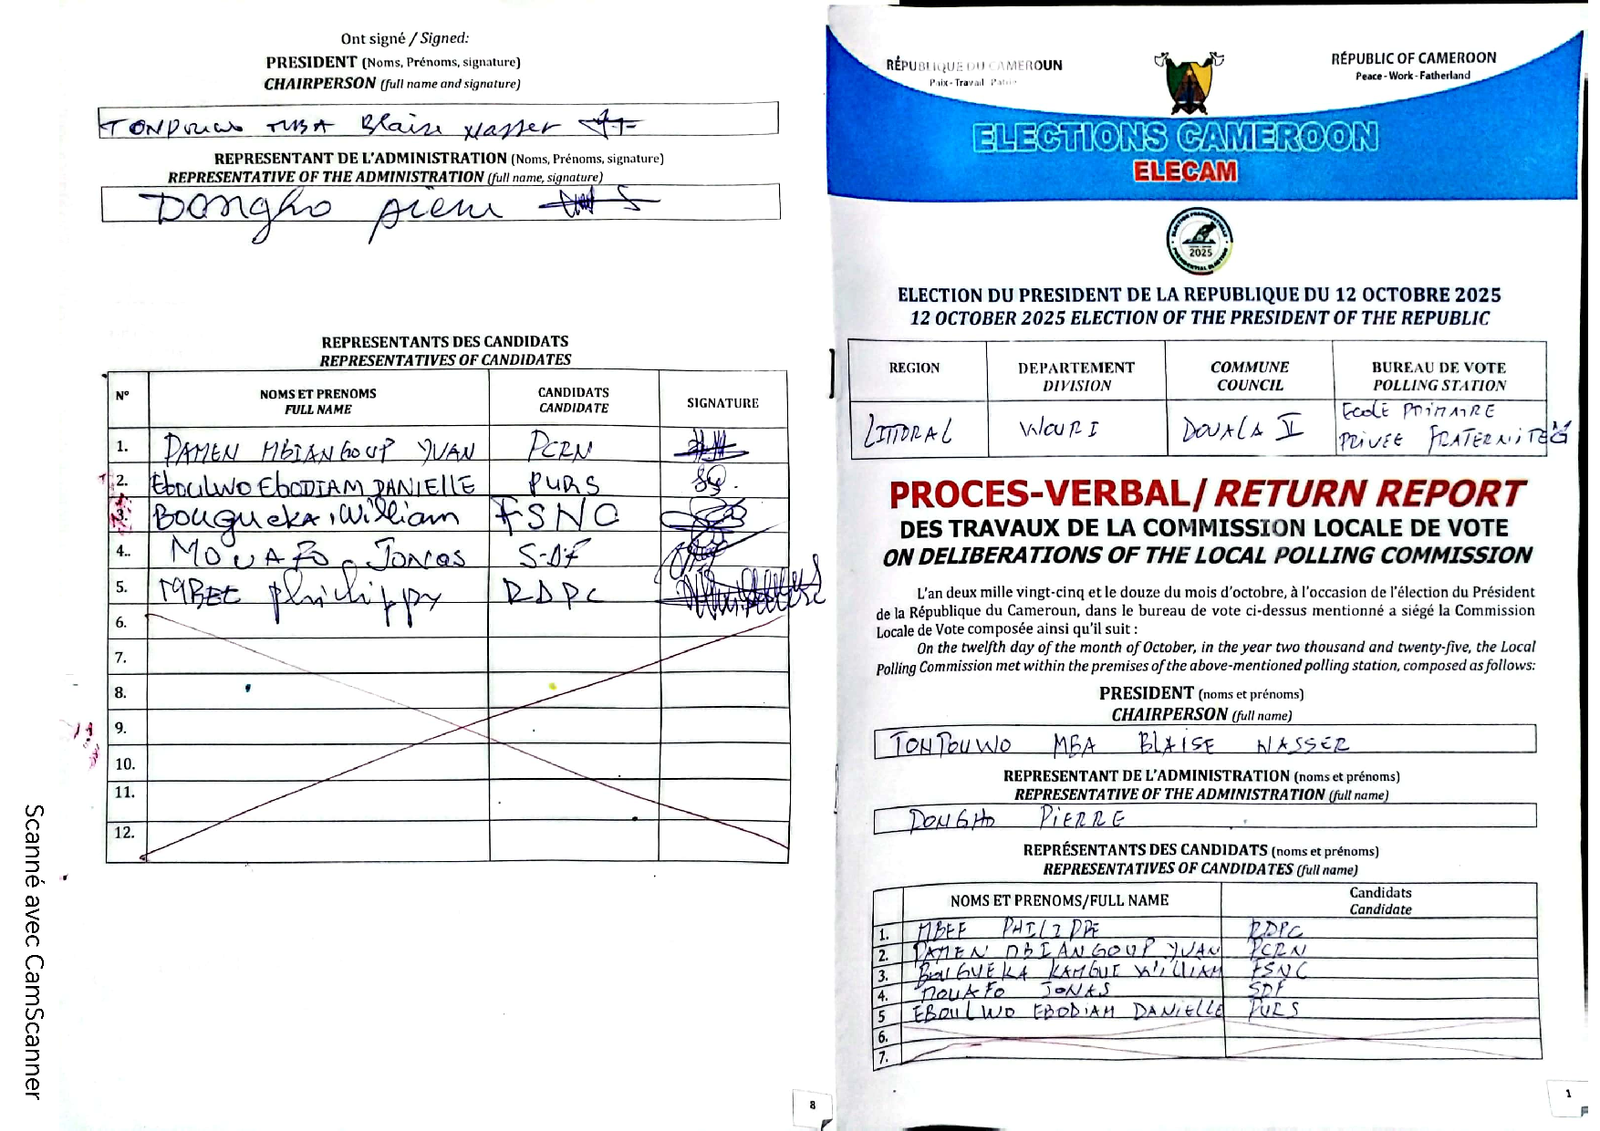 Ont signé / Signed:
PRESIDENT (Noms, Prénoms, signature)
CHAIRPERSON (full name and signature)
MBA Blaise Nasser
REPRESENTANT DE L'ADMINISTRATION (Noms, Prénoms, signature)
REPRESENTATIVE OF THE ADMINISTRATION (full name, signature)
Dongho
REPRESENTANTS DES CANDIDATS
REPRESENTATIVES OF CANDIDATES
N° NOMS ET PRENOMS FULL NAME CANDIDATS CANDIDATE SIGNATURE
1. DAMEN MBIANGOUP YVAN PCRN
2. EBOULWO EBODIAM DANIELLE PURS
3. BOUGUEKA William FSNC
4.. MOUAFO JONAS SDF
5. MBEE philippy RDPC
6.
7.
8.
9.
10.
11.
12.
8
Scanné avec CamScanner
RÉPUBLIQUE DU CAMEROUN
Paix - Travail - Patrie
RÉPUBLIC OF CAMEROON
Peace - Work - Fatherland
ELECTIONS CAMEROON
ELECAM
ELECTION PRESIDENTIELLE
2025
PRESIDENTIAL ELECTION
ELECTION DU PRESIDENT DE LA REPUBLIQUE DU 12 OCTOBRE 2025
12 OCTOBER 2025 ELECTION OF THE PRESIDENT OF THE REPUBLIC
REGION DEPARTEMENT DIVISION COMMUNE COUNCIL BUREAU DE VOTE POLLING STATION
LITTORAL WOURI DOUALA II ECOLE PRIMAIRE PRIVEE FRATERNITE
PROCES-VERBAL/ RETURN REPORT
DES TRAVAUX DE LA COMMISSION LOCALE DE VOTE
ON DELIBERATIONS OF THE LOCAL POLLING COMMISSION
L'an deux mille vingt-cinq et le douze du mois d'octobre, à l'occasion de l'élection du Président
de la République du Cameroun, dans le bureau de vote ci-dessus mentionné a siégé la Commission
Locale de Vote composée ainsi qu'il suit :
On the twelfth day of the month of October, in the year two thousand and twenty-five, the Local
Polling Commission met within the premises of the above-mentioned polling station, composed as follows:
PRESIDENT (noms et prénoms)
CHAIRPERSON (full name)
TONPOUWO MBA BLAISE NASSER
REPRESENTANT DE L'ADMINISTRATION (noms et prénoms)
REPRESENTATIVE OF THE ADMINISTRATION (full name)
DONGHO PIERRE
REPRÉSENTANTS DES CANDIDATS (noms et prénoms)
REPRESENTATIVES OF CANDIDATES (full name)
NOMS ET PRENOMS/FULL NAME Candidats Candidate
1. MBEE PHILIPPE RDPC
2. DAMEN MBIANGOUP YVAN PCRN
3. BOUGUEKA KAMGUE WILLIAM FSNC
4. MOUAFO JONAS SDF
5 EBOULWO EBODIAM DANIELLE PURS
6.
7.
1